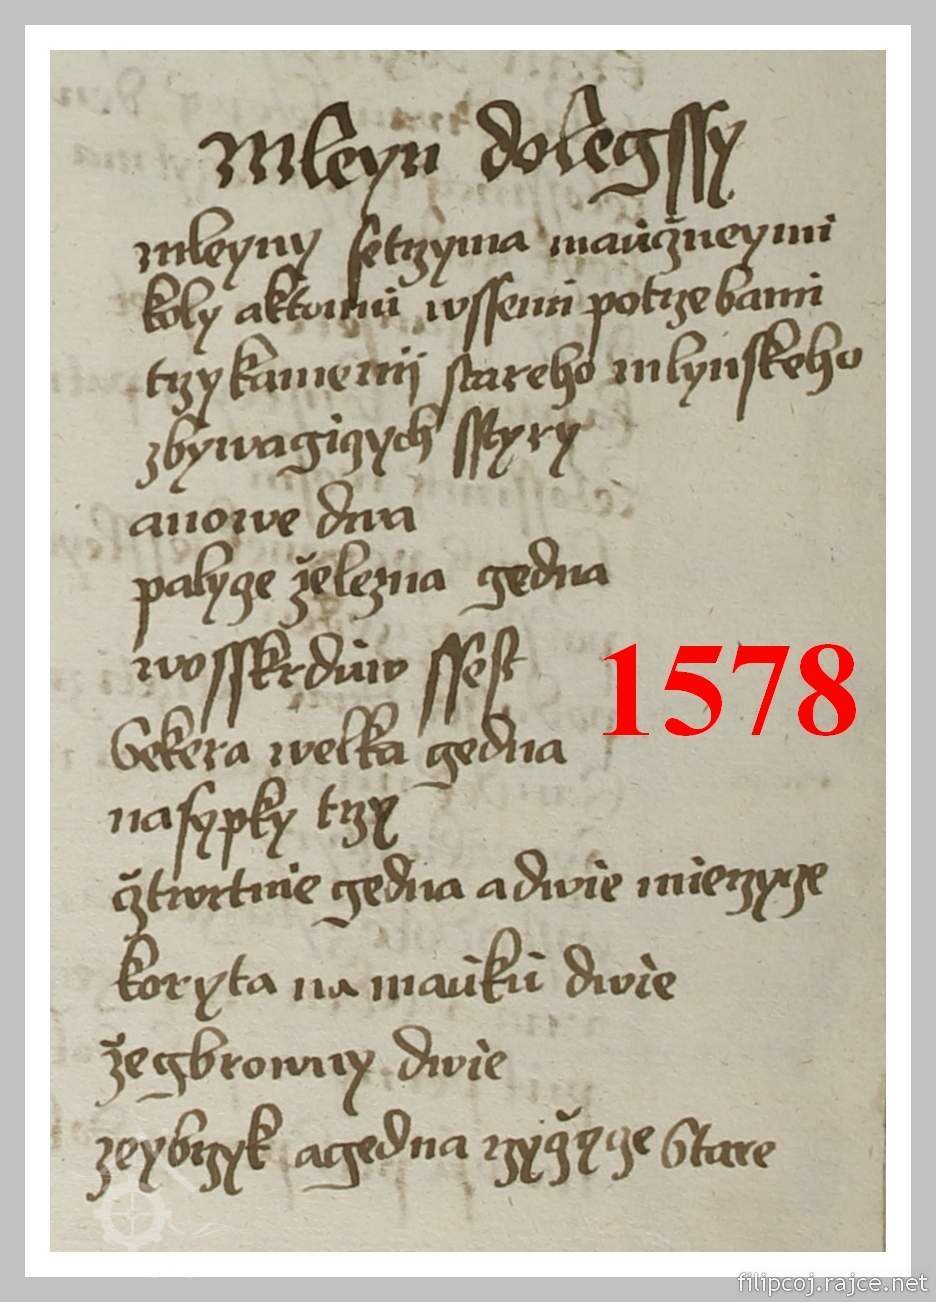 Mleyn dolegssy
mleyny setrzyma mauczneymi
koly aktomu wssemi potrzebami
trzy kamenij stareho mlynskeho
zbywagiczych sstyry
a nowe dwa
palycze železna gedna
wosskrduw ssest
Sekera welka gedna
nasypky trzy
čtwrtnie gedna a dwie mierzycze
koryta na mauku dwie
žegbrowny dwie
zeybrzyk agedna rzyczycze Stare
1578
filipcoj.rajce.net